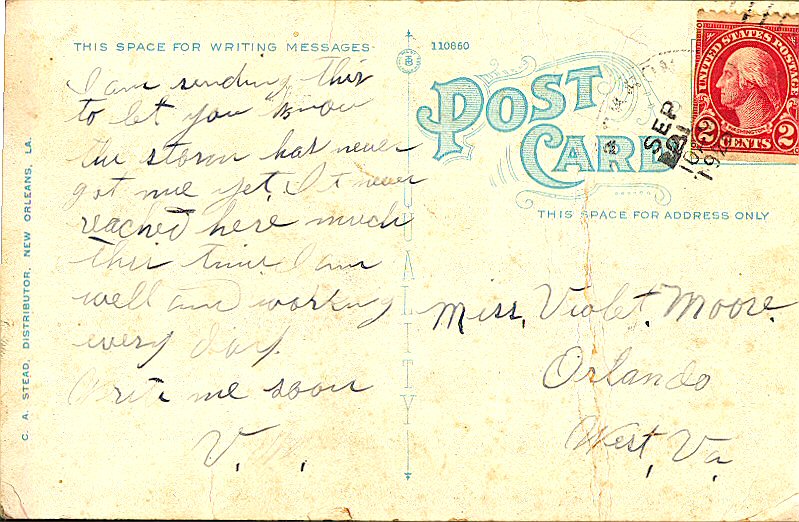 THIS SPACE FOR WRITING MESSAGES
110860
POST
CARD
THIS SPACE FOR ADDRESS ONLY
UNITED STATES POSTAGE
WASHINGTON
2 CENTS 2
SEP
I am sending this
to let you know
the storm has never
got me yet, It never
reached here much
this time I am
well and working
every day.
Write me soon
V.
Miss, Violet, Moore.
Orlando
West, Va
QUALITY
C. A. STEAD, DISTRIBUTOR, NEW ORLEANS, LA.